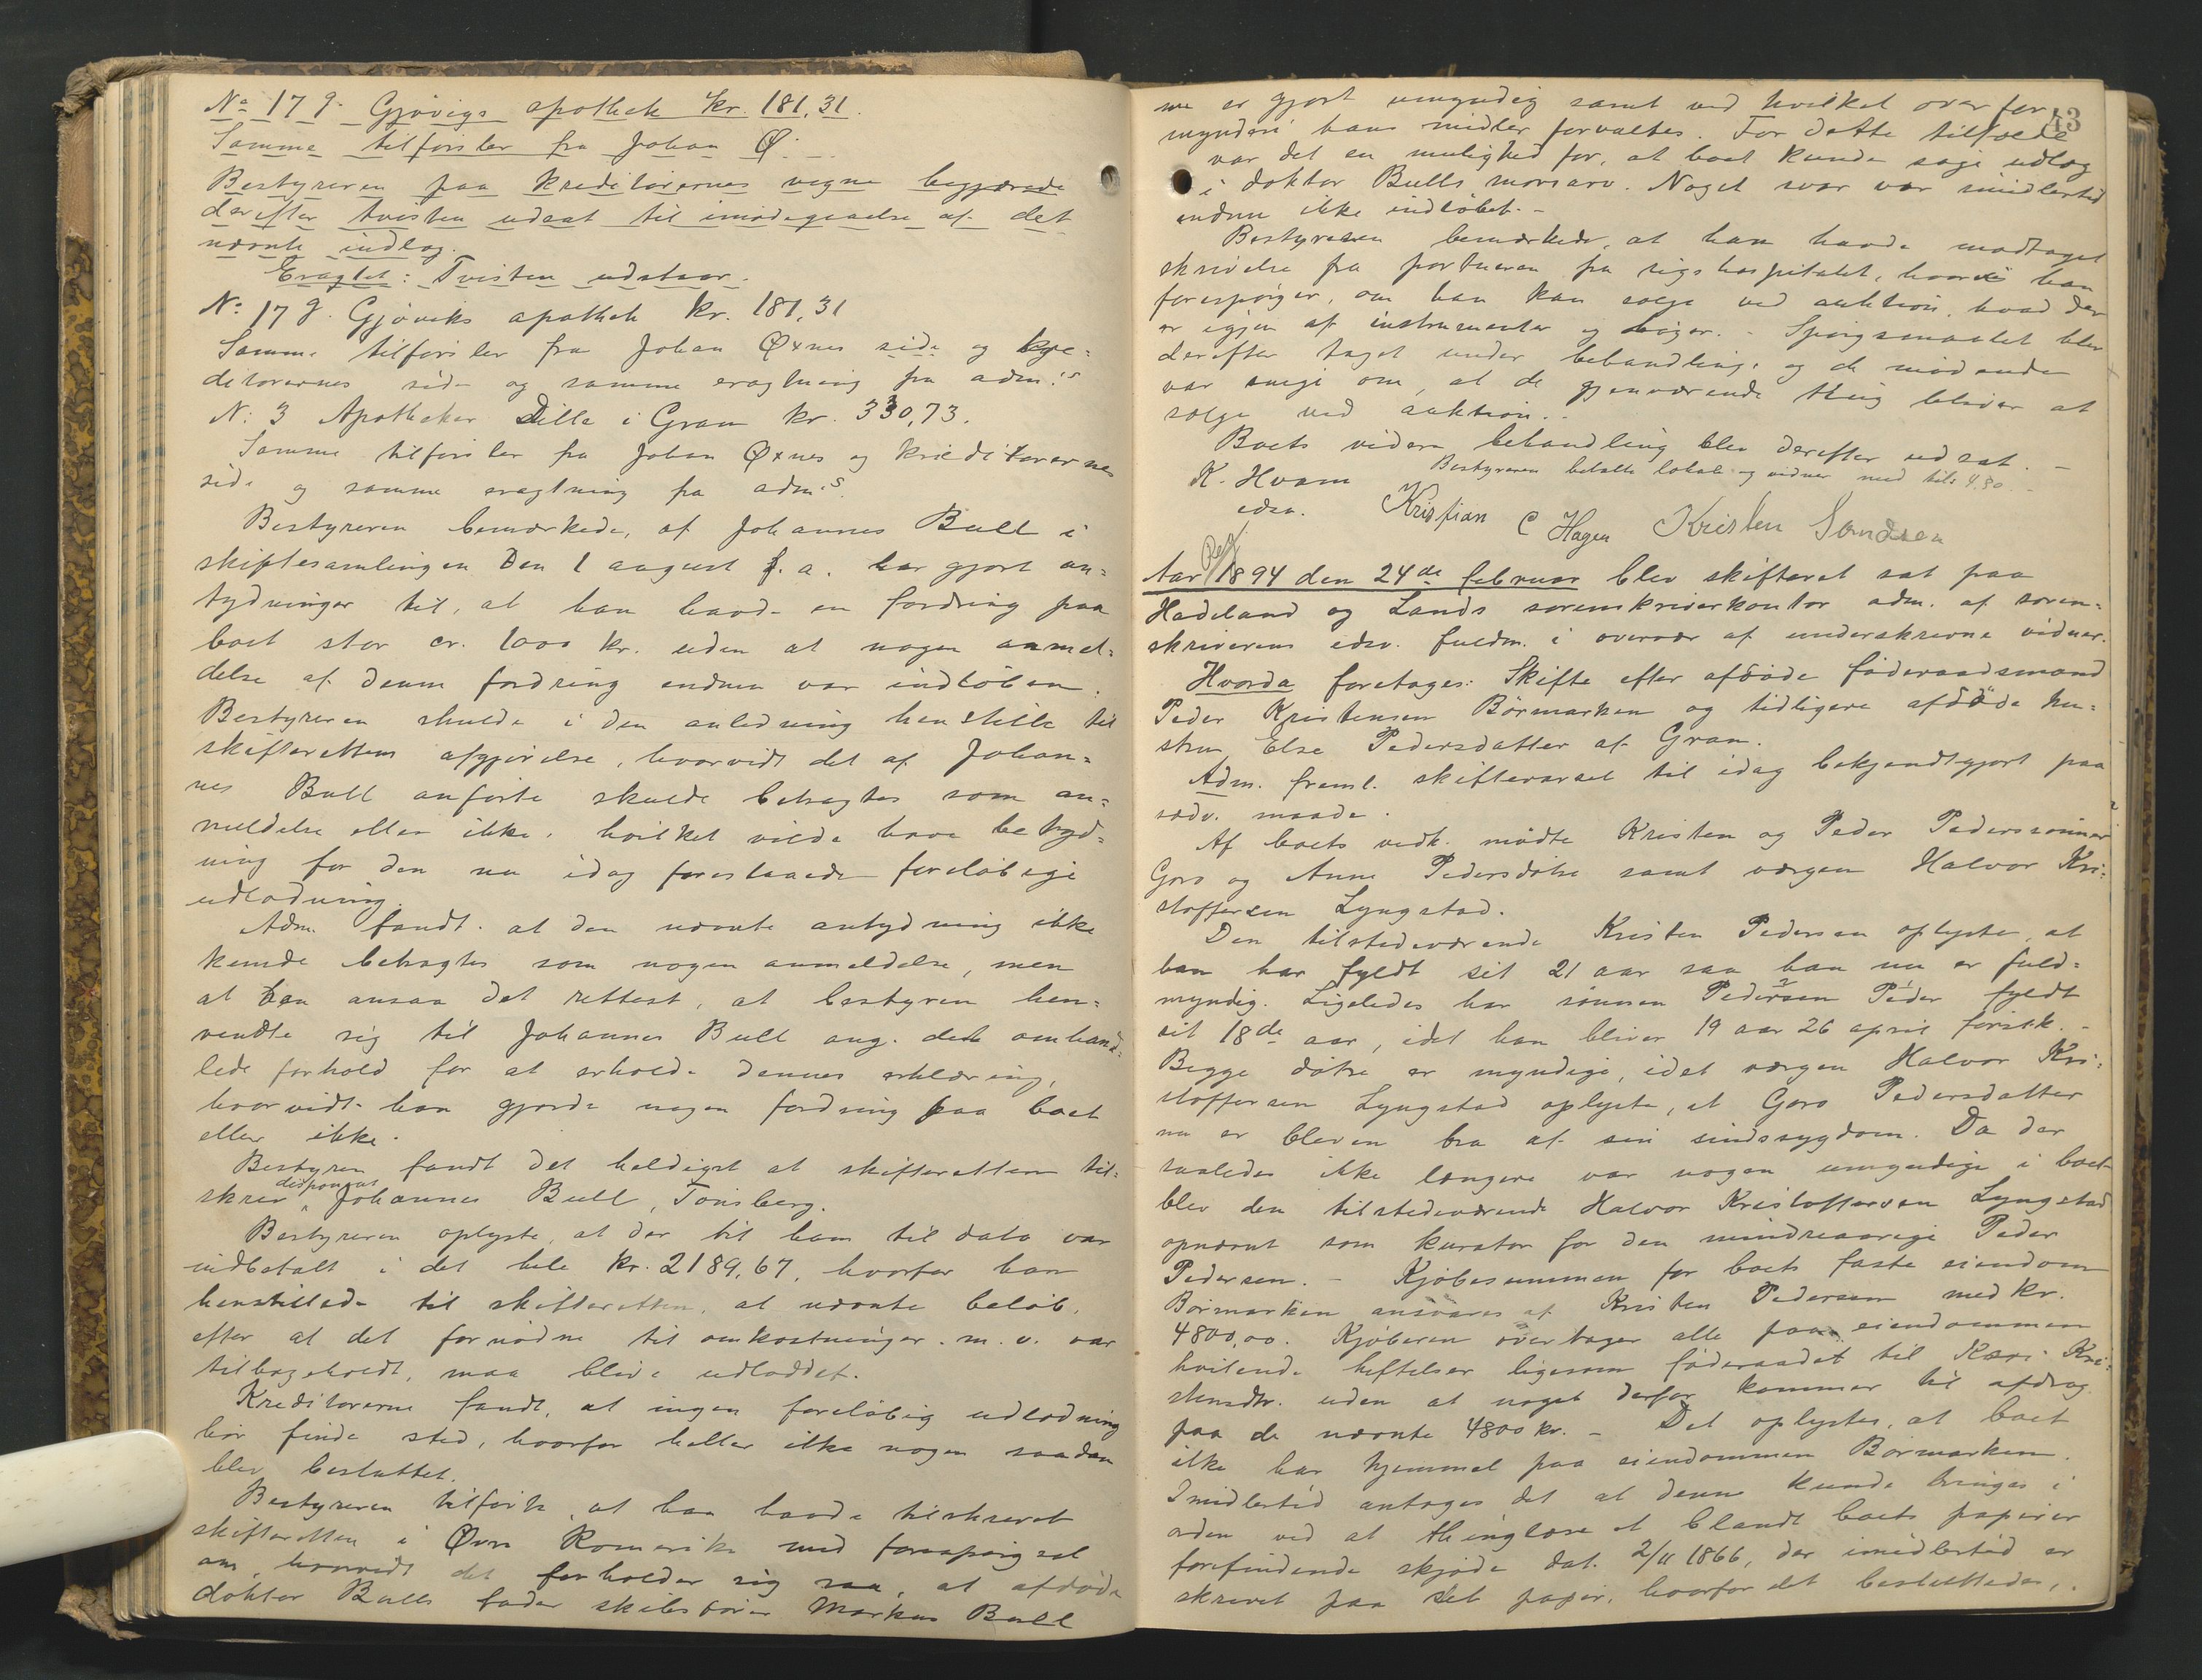 No 17 g. Gjøvigs apothek kr. 181,31.
Samme tilførsler fra Johan Ø.
Bestyreren paa kreditorernes vegne begjærede
derefter tvisten udsat til imødegaaelse af det
nævnte indlæg.
Eragtet: Tvisten udstaar.
No 17 g. Gjøviks apothek kr. 181,31
Samme tilførsler fra Johan Øxnes side og kre=
ditorernes side og samme eragtning fra adm:s
N: 3 Apotheker Dille i Gran kr. 330,73.
Samme tilførsler fra Johan Øxnes og kreditorernes
side og samme eragtning fra adm:s.
Bestyreren bemærkede, at Johannes Bull i
skiftesamlingen den 1 august f. a. har gjort an=
tydninger til, at han havde en fordring paa
boet stor cr. 1000 kr. uden at nogen anmel=
delse af denne fordring endnu var indløben.
Bestyreren skulde i den anledning henstille til
skifterettens afgjørelse, hvorvidt det af Johan=
nes Bull anførte skulde betragtes som an=
meldelse eller ikke, hvilket vilde have betyd=
ning for den nu idag forestaaende foreløbige
udlodning.
Adm. fandt at den nævnte antydning ikke
kunde betragtes som nogen anmeldelse, men
at han ansaa det rettest, at bestyren hen=
vendte sig til Johannes Bull ang. det omhand=
lede forhold for at erholde dennes erklæring,
hvorvidt han gjorde nogen fordring paa boet
eller ikke.
Bestyren fandt det heldigst at skifteretten til=
skrev disponent Johannes Bull, Tønsberg.
Bestyreren oplyste, at der til ham til dato var
indbetalt i det hele kr. 2189,67, hvorfor han
henstillede til skifteretten, at nævnte beløb,
efter at det fornødne til omkostninger m. v. var
tilbageholdt, maa blive udloddet.
Kreditorerne fandt, at ingen foreløbig udlodning
bør finde sted, hvorfor heller ikke nogen saadan
blev besluttet.
Bestyreren tilførte, at han havde tilskrevet
skifteretten i Øvre Romerike med forespørgsel
om, hvorvidt det forholder sig saa, at afdøde
doktor Bulls fader skibsfører Markus Bull
43
nu er gjort umyndig samt ved hvilket overfor
mynderi hans midler forvaltes. For dette tilfælde
var det en mulighed for, at boet kunde søge udlæg
i doktor Bulls morsarv. Noget svar var imidlertid
endnu ikke indløbet. –
Bestyreren bemærkede, at han havde modtaget
skrivelse fra portneren fra rigshospitalet, hvori han
forespørger, om han kan sælge ved auktion, hvad der
er igjen af instrumenter og bøger. – Spørgsmaalet blev
derefter taget under behandling, og de mødende
var enige om, at de gjenværende ting bliver at
sælge ved auktion.
Boets videre behandling blev derefter udsat. –
Bestyreren betalte lokale og vidner med tils. 4,80. –
K. Hvam
edsv.
Kristian C Hagen Kristen Sandsen
Aar 1894 den 24de februar blev skifteret sat paa
Hadeland og Lands sorenskriverkontor adm. af soren=
skriverens edsv. fuldm. i overvær af underskrevne vidner.
Hvorda foretages: Skifte efter afdøde føderaadsmand
Peder Kristensen Børmarken og tidligere afdøde hu=
stru Else Pedersdatter af Gran.
Adm. freml. skiftevarsel til idag bekjendtgjort paa
sædv. maade.
Af boets vedk. mødte Kristen og Peder Paderssønner
Goro og Anne Pedersdøtre samt værgen Halvor Kri=
stoffersen Lyngstad.
Den tilstedeværende Kristen Pedersen oplyste, at
han har fyldt sit 21 aar saa han nu er fuld=
myndig. Ligeledes har sønnen Pedersen Peder fyldt
sit 18de aar, idet han bliver 19 aar 26 april førstk. –
Begge døtre er myndige, idet værgen Halvor Kri=
stoffersen Lyngstad oplyste, at Goro Pedersdatter
nu er bleven bra af sin sindssygdom. Da der
saaledes ikke længere var nogen umyndige i boet
blev den tilstedeværende Halvor Kristoffersen Lyngstad
opnævnt som kurator for den mindreaarige Peder
Pedersen. – Kjøbesummen for boets faste eiendom
Børmarken ansvares af Kristen Pedersen med kr.
4800,00. Kjøberen overtager alle paa eiendommen
hvilende heftelser ligesom føderaadet til Kari Kri=
stensdtr. uden at noget derfor kommer til afdrag
paa de nævnte 4800 kr. – Det oplystes, at boet
ikke har hjemmel paa eiendommen Børmarken.
Imidlertid antages det at denne kunde bringes i
orden ved at thinglæse et blandt boets papirer
forefindende skjøde dat. 2/11 1866, der imidlertid er
skrevet paa slet papir, hvorfor det besluttedes,